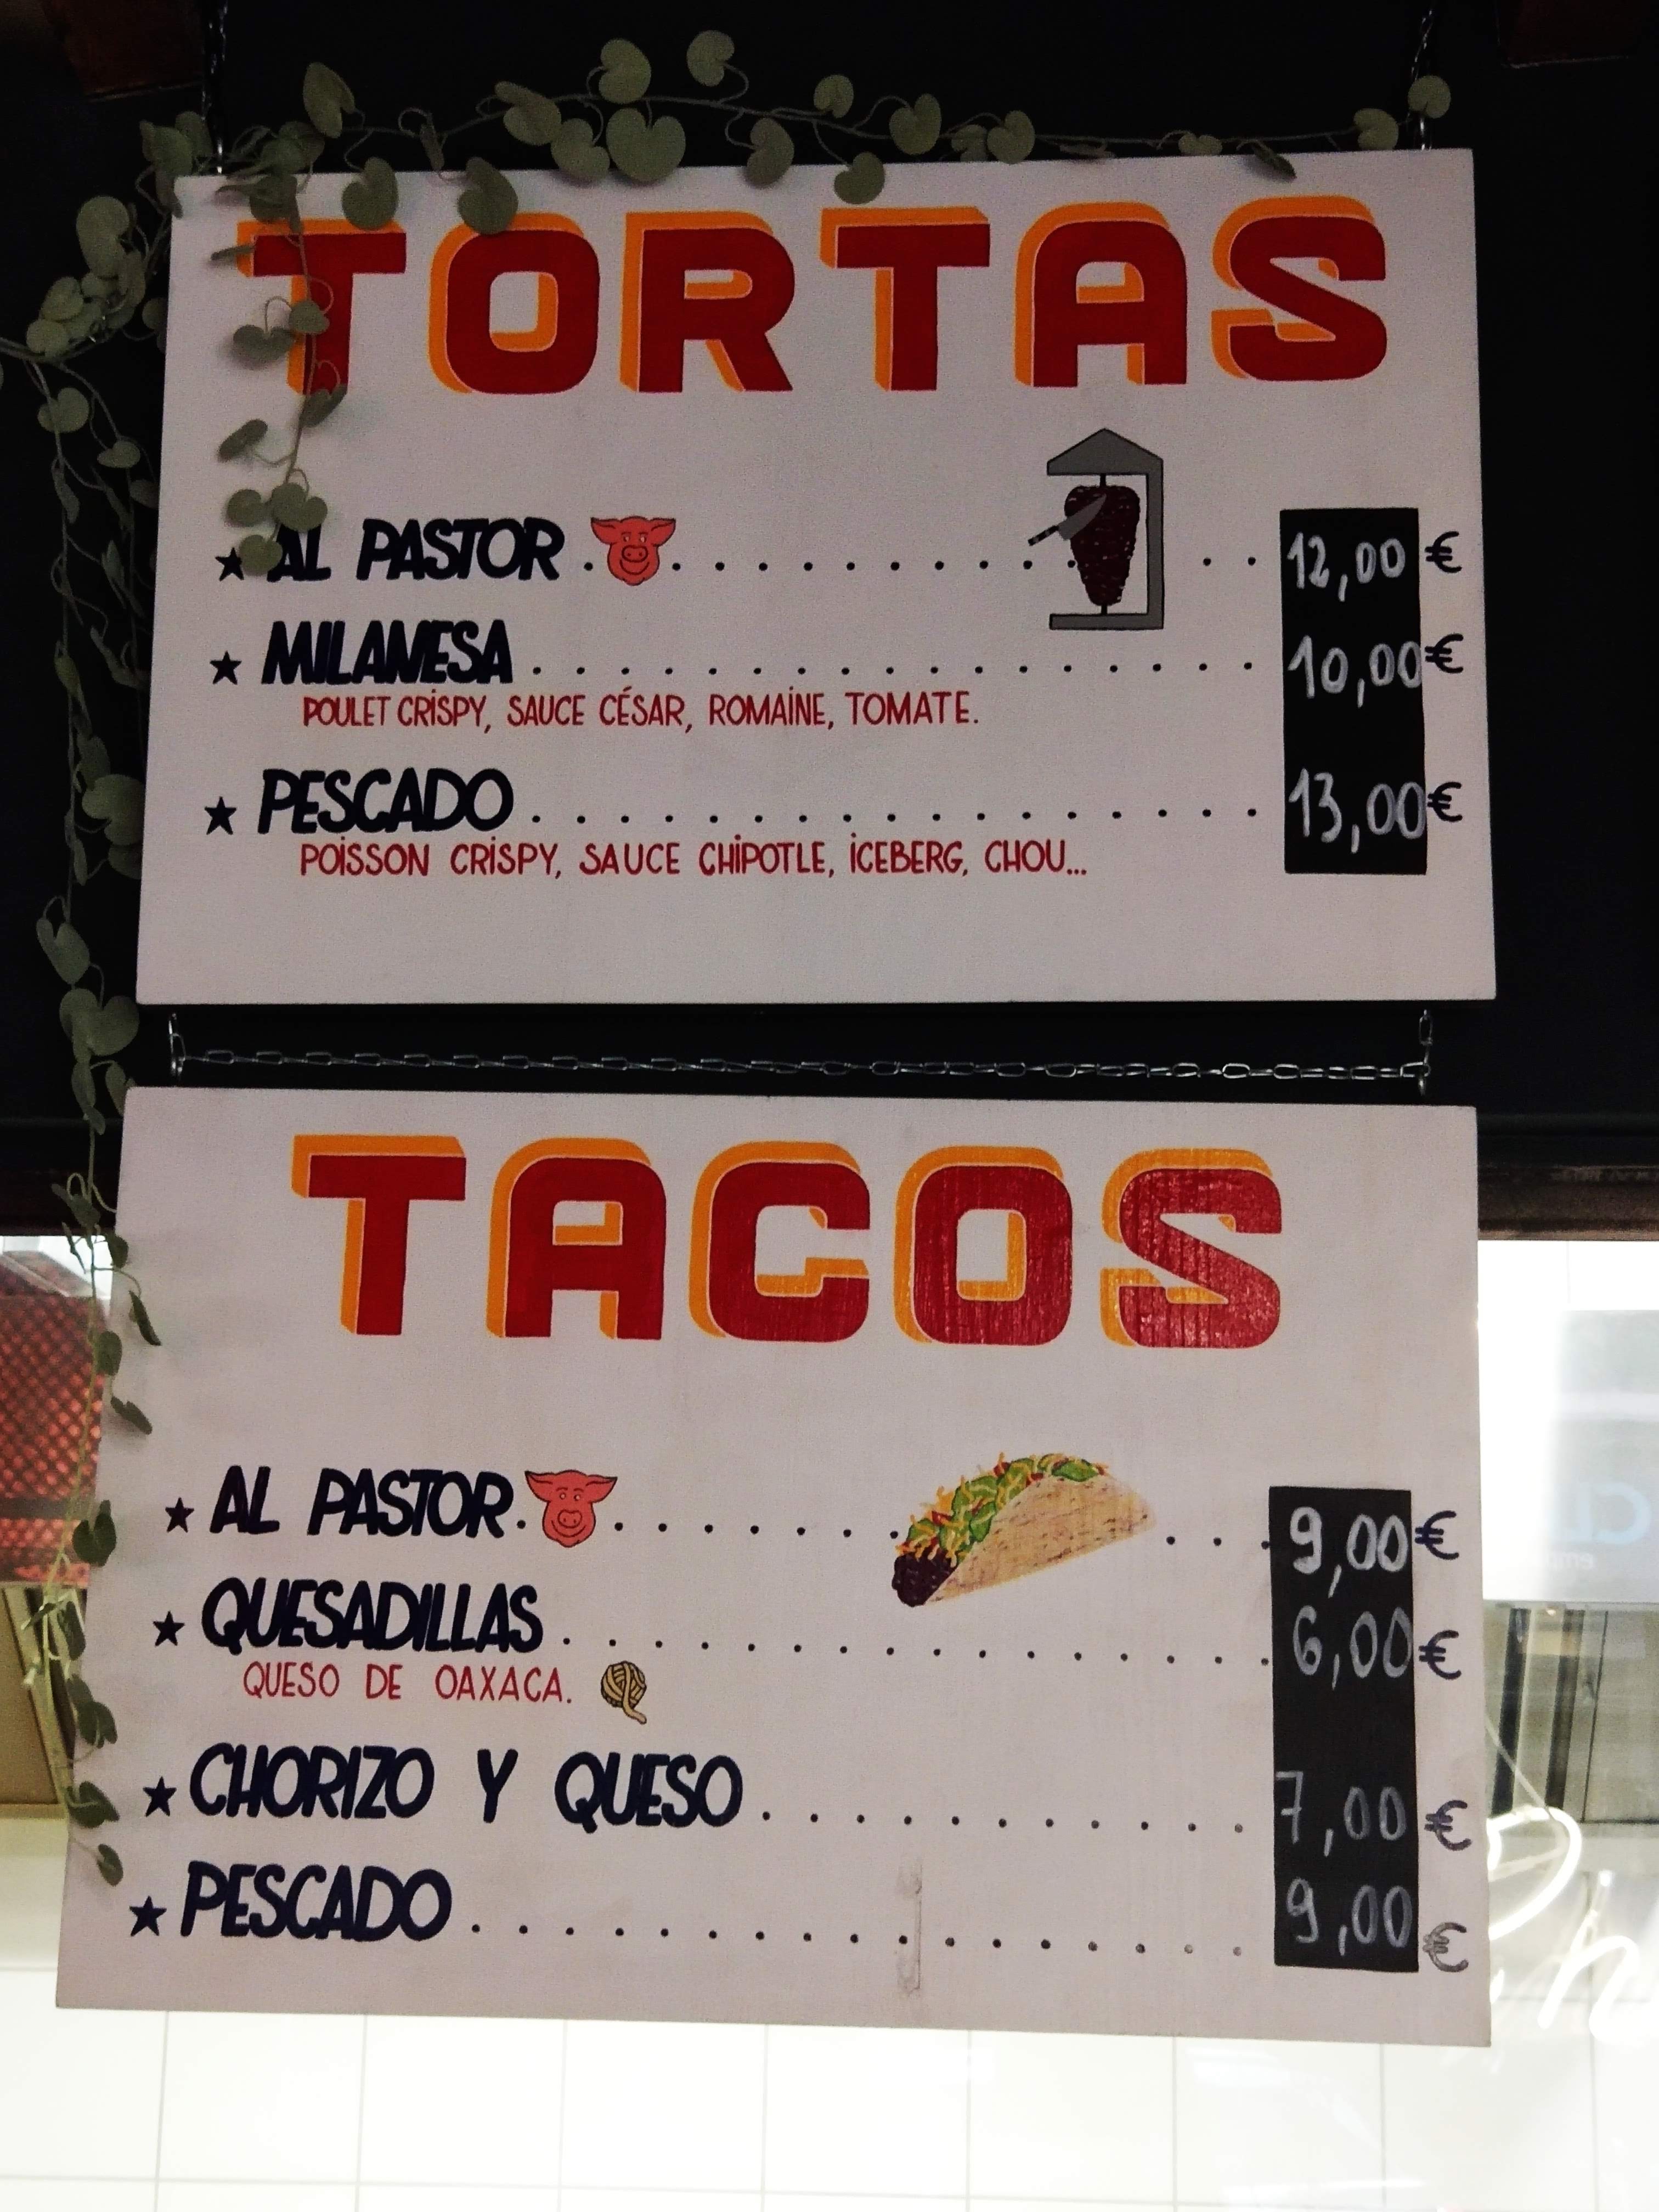 TORTAS
★ AL PASTOR . . . . . . . . . . . . . . 12,00 €
★ MILANESA . . . . . . . . . . . . . . . . . 10,00 €
POULET CRISPY, SAUCE CÉSAR, ROMAINE, TOMATE.
★ PESCADO . . . . . . . . . . . . . . . . . 13,00 €
POISSON CRISPY, SAUCE CHIPOTLE, ICEBERG, CHOU...
TACOS
★ AL PASTOR . . . . . . . . . . . 9,00 €
★ QUESADILLAS . . . . . . . . . . . . . . . . 6,00 €
QUESO DE OAXACA.
★ CHORIZO Y QUESO . . . . . . . . . . . 7,00 €
★ PESCADO . . . . . . . . . . . . . . . . . 9,00 €